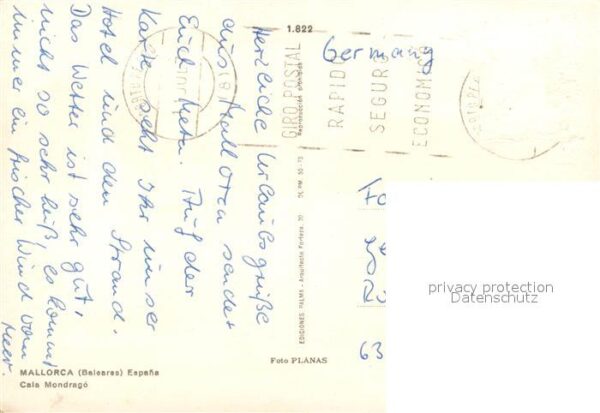 1.822
Germany
GIRO POSTAL
RAPIDO
SEGURO
ECONOMICO
Reproducción prohibida
Herzliche Urlaubsgrüße
aus Mallorca sendet
Euch Petra. Auf der
Karte seht Ihr unser
Hotel und den Strand.
Das Wetter ist sehr gut,
nicht so sehr heiß, es kommt
immer ein frischer Wind vom
Meer.
EDICIONES PALMA - Arquitecto Forteza, 20
63
privacy protection
Datenschutz
Foto PLANAS
MALLORCA (Baleares) España
Cala Mondragó